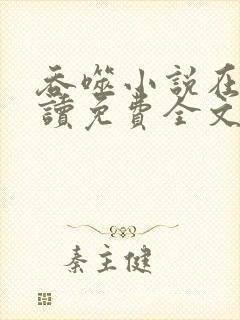 吞噬小說在
讀免費全文
秦主健